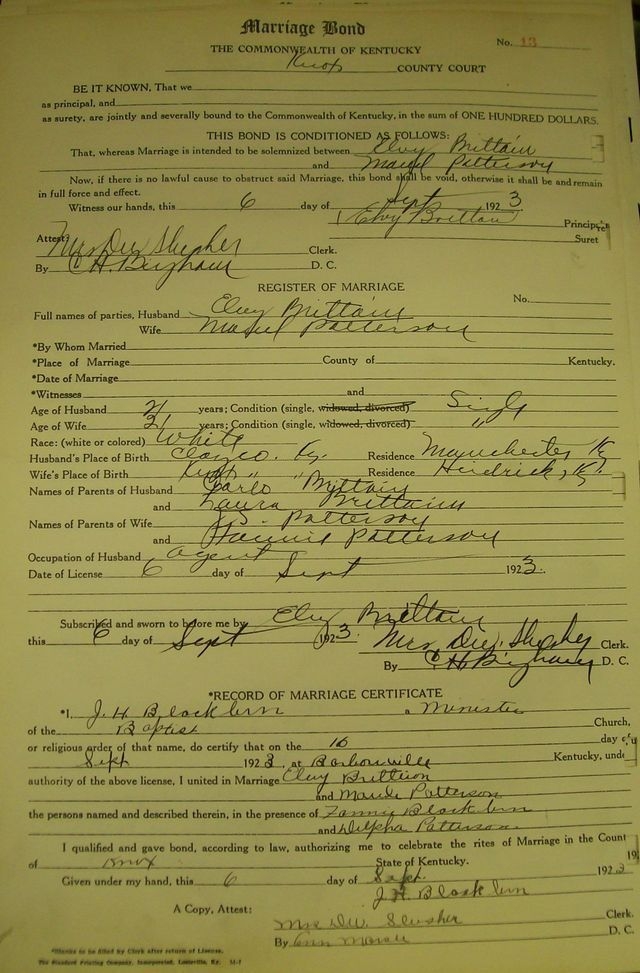 Marriage Bond
No. 13
THE COMMONWEALTH OF KENTUCKY
Knox COUNTY COURT
BE IT KNOWN, That we
as principal, and
as surety, are jointly and severally bound to the Commonwealth of Kentucky, in the sum of ONE HUNDRED DOLLARS.
THIS BOND IS CONDITIONED AS FOLLOWS:
That, whereas Marriage is intended to be solemnized between Elvy Brittain
and Patterson
Now, if there is no lawful cause to obstruct said Marriage, this bond shall be void, otherwise it shall be and remain
in full force and effect.
Witness our hands, this 6 day of Sept 1923
Elvy Britton Principal
Suret
Attest: Mrs Dw Slusher Clerk.
By C H Bingham D. C.
REGISTER OF MARRIAGE
No.
Full names of parties, Husband Elvy Brittain
Wife Patterson
*By Whom Married
*Place of Marriage County of Kentucky.
*Date of Marriage
*Witnesses and
Age of Husband 21 years; Condition (single, widowed, divorced) Single
Age of Wife 21 years; Condition (single, widowed, divorced) "
Race: (white or colored) White
Husband's Place of Birth Clay co. Ky. Residence Manchester Ky
Wife's Place of Birth Knox " " Residence Hendrick, Ky.
Names of Parents of Husband Brittain
and Laura Brittain
Names of Parents of Wife Patterson
and Patterson
Occupation of Husband agent
Date of License 6 day of Sept 1923.
Subscribed and sworn to before me by Elvy Brittain
this 6 day of Sept 1923. Mrs. Dw. Slusher Clerk.
By C H Bingham D. C.
*RECORD OF MARRIAGE CERTIFICATE
*I, J. H. Blackburn a Minister
of the Baptist Church,
or religious order of that name, do certify that on the day of
Sept 1923, at Barbourville Kentucky, unde
authority of the above license, I united in Marriage Elvy Brittion
and Maude Patterson
the persons named and described therein, in the presence of Fanny Blackburn
and Delpha Patterson
I qualified and gave bond, according to law, authorizing me to celebrate the rites of Marriage in the Count
of Knox State of Kentucky. 19
Given under my hand, this 6 day of Sept. 1923
J. H. Blackburn
A Copy, Attest:
Mrs Dw. Slusher Clerk.
By D. C.
*Blanks to be filled by Clerk after return of License.
The Standard Printing Company, Incorporated, Louisville, Ky.